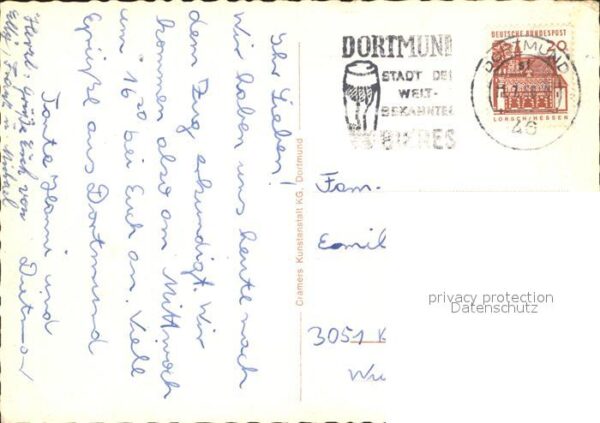 Ihr Lieben!
Wir haben uns heute nach
dem Zug erkundigt. Wir
kommen also am Mittwoch
um 16²⁰ bei Euch an. Viele
Grüße aus Dortmund
Tante Hanni und
Dietmar
Herzl. Grüße Euch von
Cramers Kunstanstalt KG, Dortmund
DORTMUND
STADT DER
WELT-
BEKANNTEN
BIERES
DORTMUND
46
DEUTSCHE BUNDESPOST
20
LORSCH/HESSEN
Fam.
Emil
3051 K
Wu
privacy protection
Datenschutz